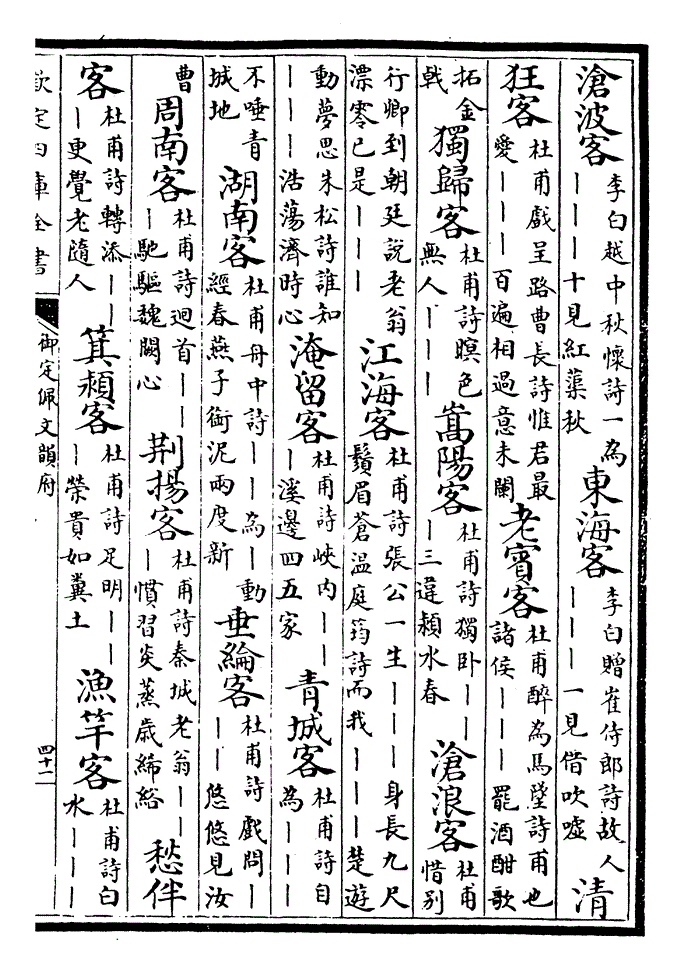 滄波客李白越中秋懷詩一為———十見紅蕖秋東海客李白贈崔侍郎詩故人———一見借吹噓清
狂客杜甫戲呈路曹長詩惟君最愛———百遍相過意未闌老賓客杜甫醉為馬墜詩甫也諸侯———罷酒酣歌
拓金戟獨歸客杜甫詩瞑色無人———嵩陽客杜甫詩獨卧———三違潁水春滄浪客杜甫惜別
行卿到朝廷說老翁漂零已是———江海客杜甫詩張公一生———身長九尺鬚眉蒼温庭筠詩而我———楚遊
動夢思朱松詩誰知———浩蕩濟時心淹留客杜甫詩峽内———溪邊四五家青城客杜甫詩自為———
不唾青城地湖南客杜甫舟中詩——為—動經春燕子銜泥兩度新垂綸客杜甫詩戲問———悠悠見汝
曹周南客杜甫詩迴首———馳驅魏闕心荆揚客杜甫詩秦城老翁———慣習炎蒸歲絺綌愁伴
客杜甫詩轉添———更覺老隨人箕潁客杜甫詩足明———榮貴如糞土漁竿客杜甫詩白水———
欽定四庫全書
御定佩文韻府
四十二